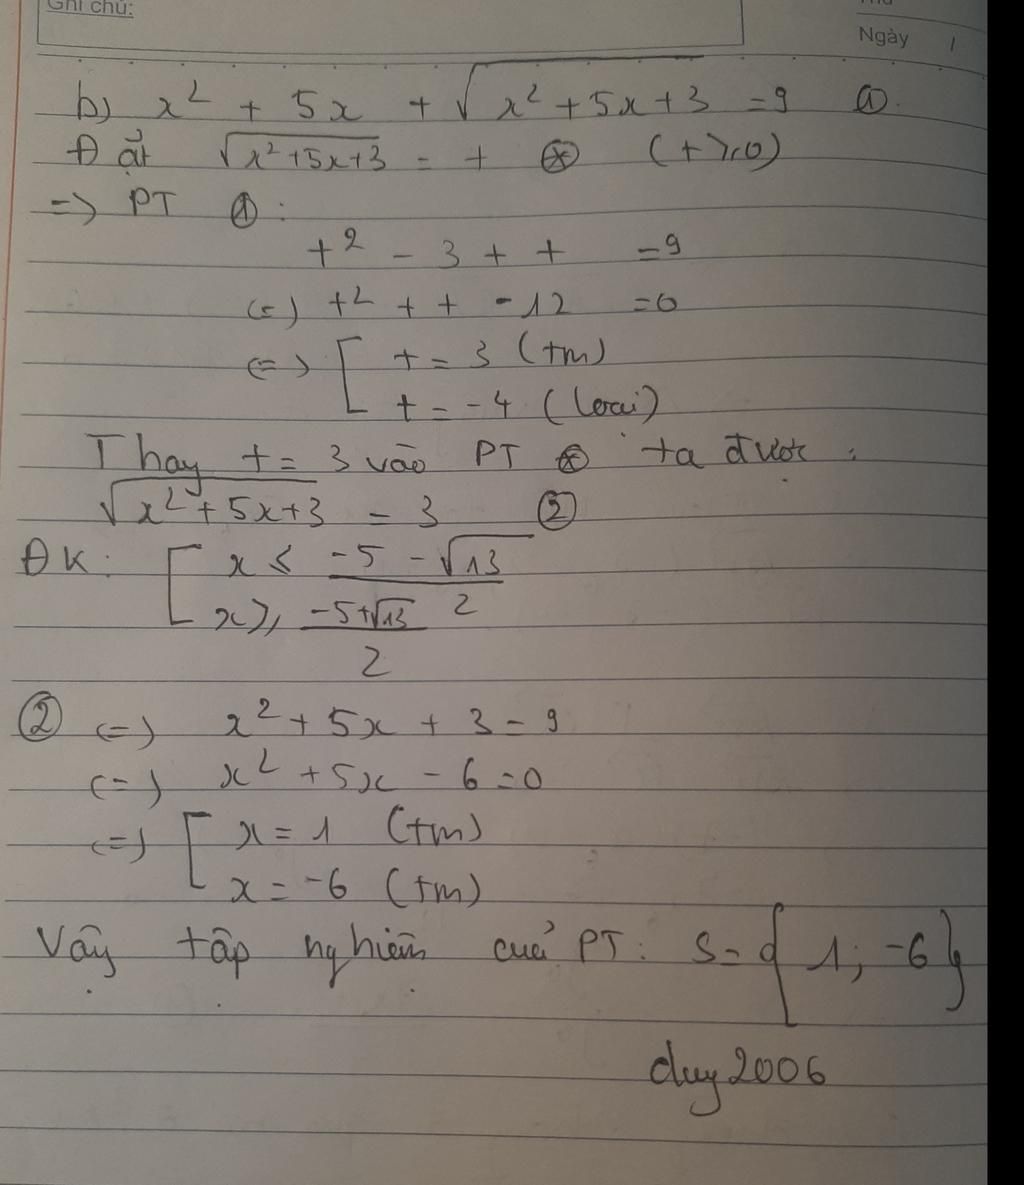 Ghi chú:
Ngày /
b) x² + 5x + √(x² + 5x + 3) = 9 ①
Đặt √(x² + 5x + 3) = t ⊛ (t ≥ 0)
=> PT ①:
t² - 3 + t = 9
(=) t² + t - 12 = 0
(=) [ t = 3 (tm)
t = -4 (loại)
Thay t = 3 vào PT ⊛ ta được:
√(x² + 5x + 3) = 3 ②
ĐK: [ x ≤ (-5 - √13)/2
x ≥ (-5 + √13)/2
② (=) x² + 5x + 3 = 9
(=) x² + 5x - 6 = 0
(=) [ x = 1 (tm)
x = -6 (tm)
Vậy tập nghiệm của PT: S = { 1; -6 }
duy2006